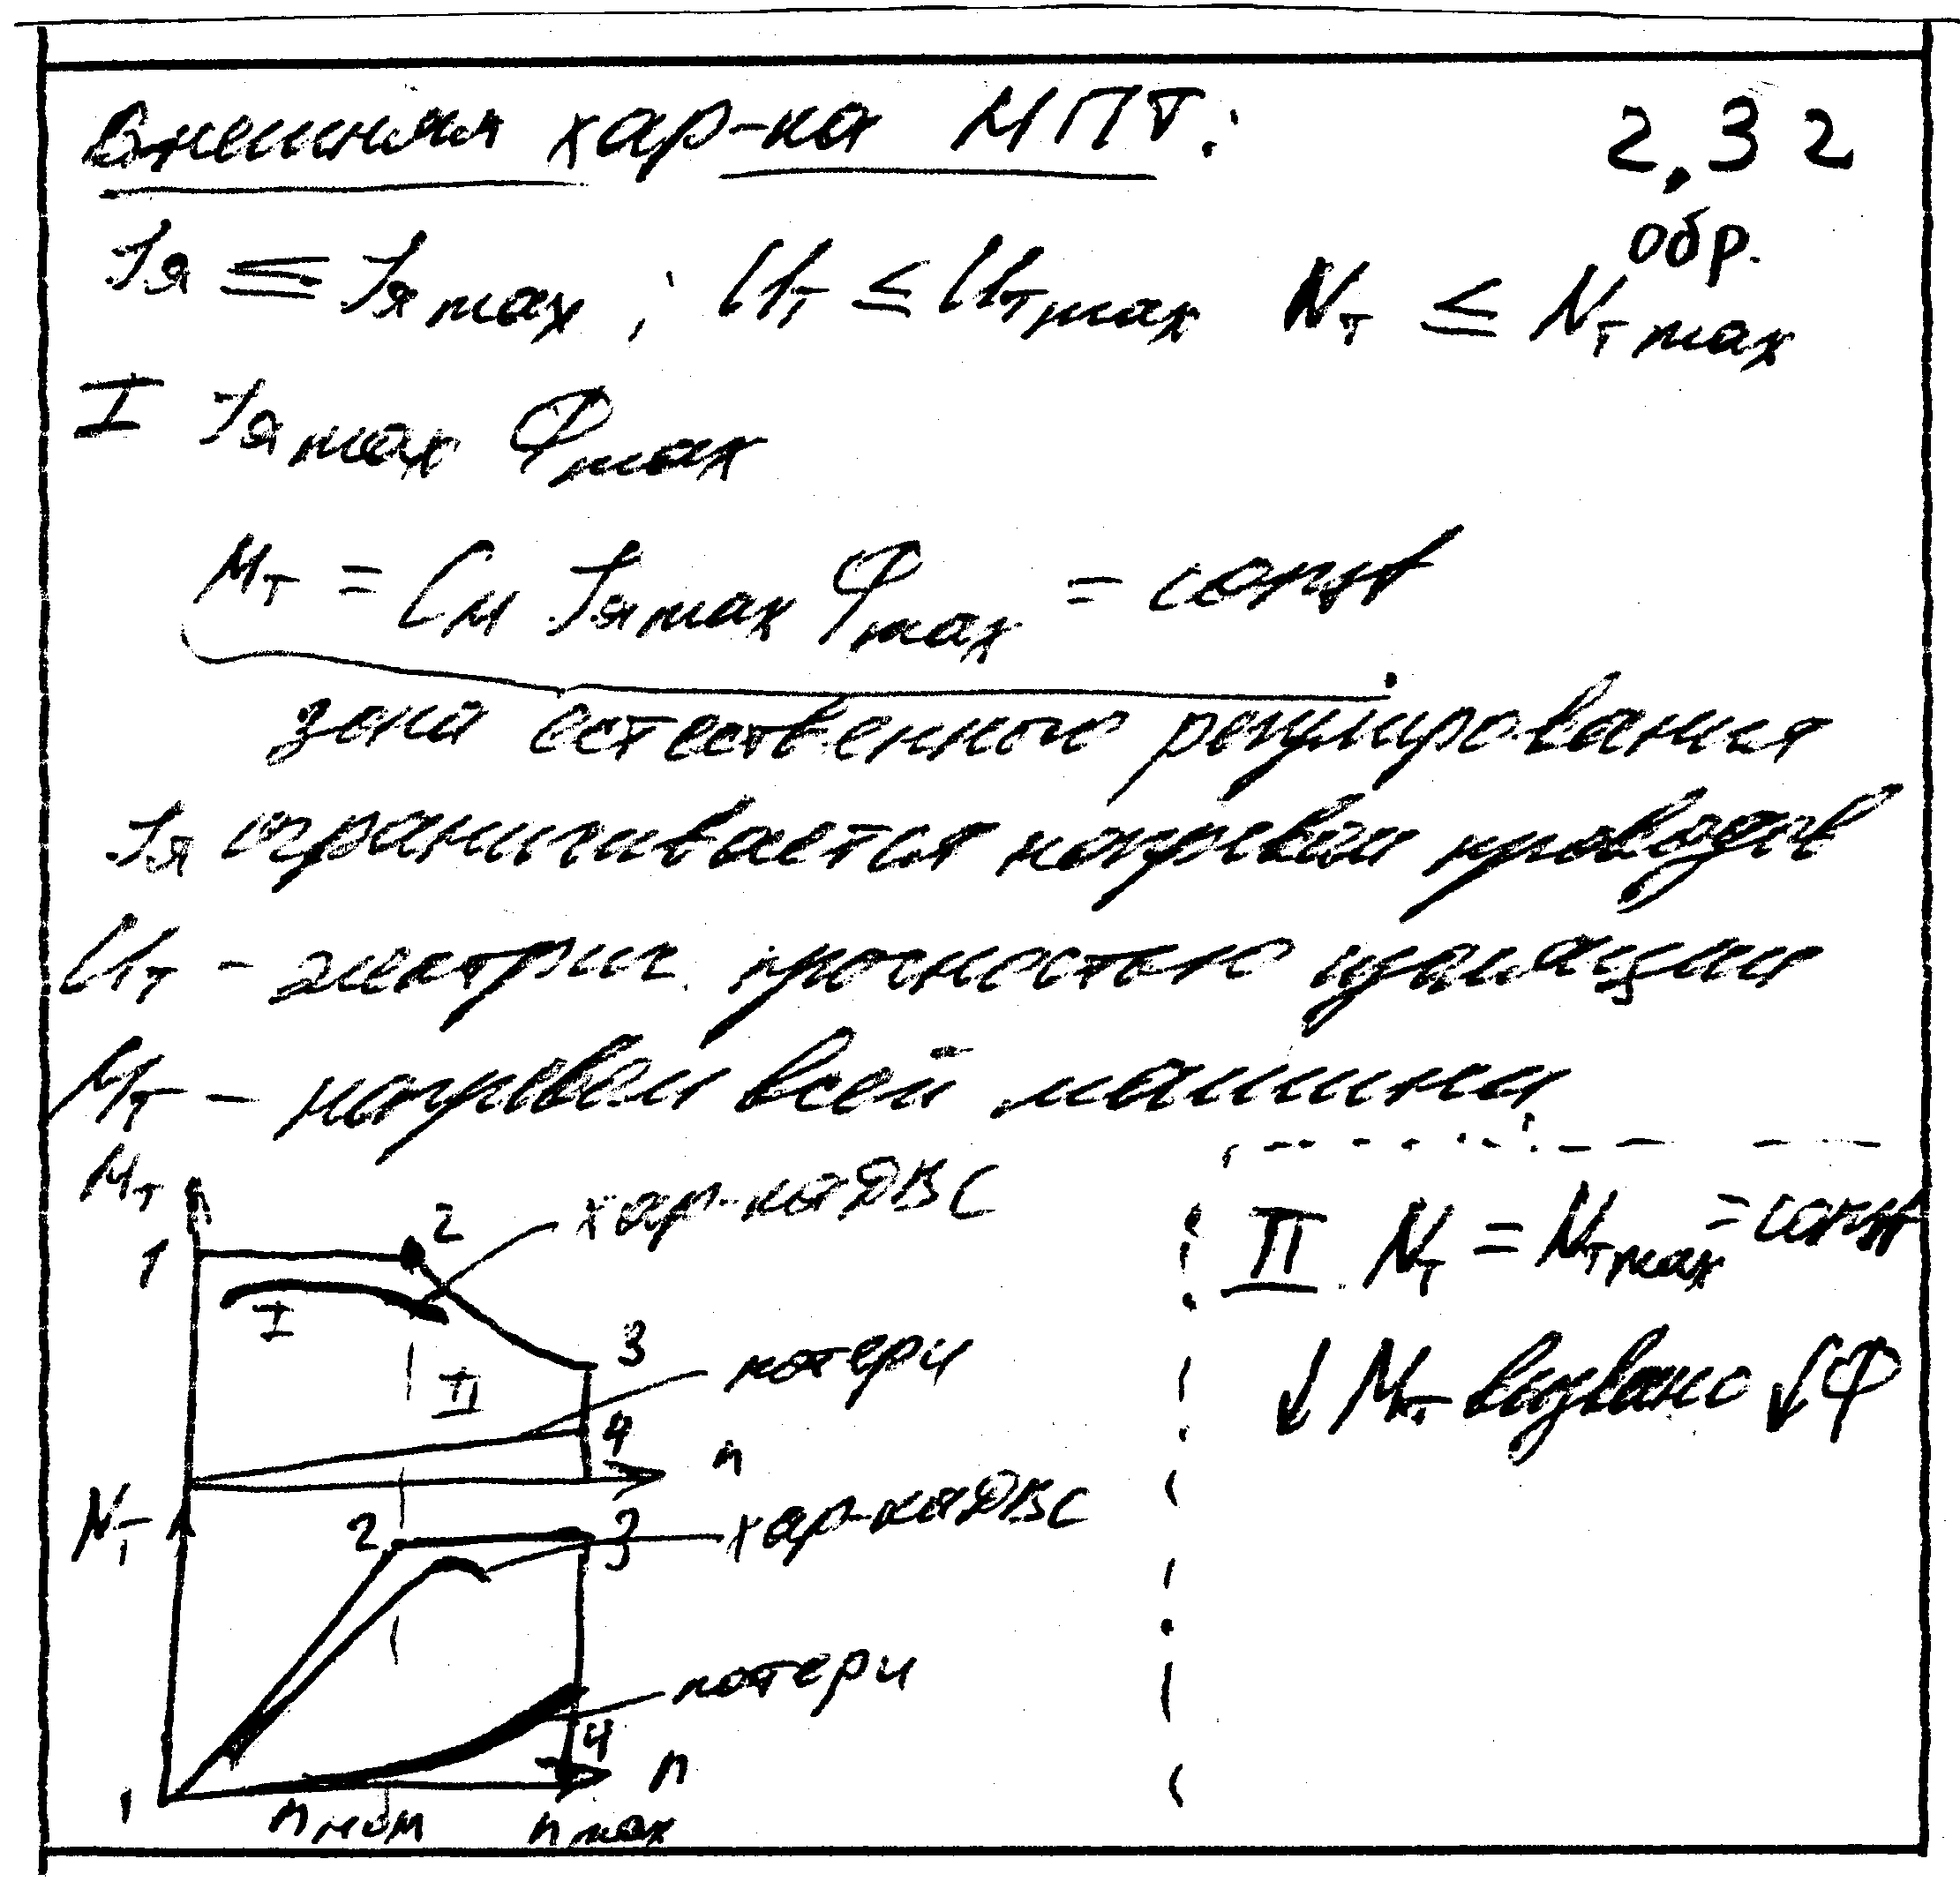 Внешняя хар-ка МПТ:
2,32
обр.
Iя ≤ Iя max ; Uт ≤ Uт max Nт ≤ Nт max
I Iя max Φmax
Mт = Cм Iя max Φmax = const
зона естественного регулирования
Iя ограничивается нагревом проводов
Uт - электрич. прочностью изоляции
Mт - нагревом всей машины.
Mт
1
2
хар-ка ДВС
I
3
потери
II
4
n
Nт
2
3
хар-ка ДВС
потери
4
1
n
nном
nmax
II Nт = Nт max = const
↓ Mт вызвано ↓ Φ